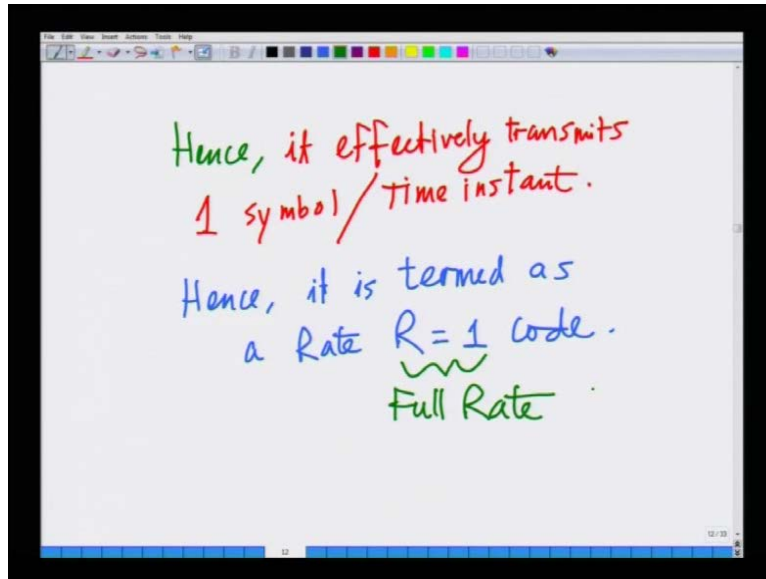 File Edit View Insert Actions Tools Help
Hence, it effectively transmits
1 symbol/Time instant.
Hence, it is termed as
a Rate R = 1 code.
Full Rate
12/33
12